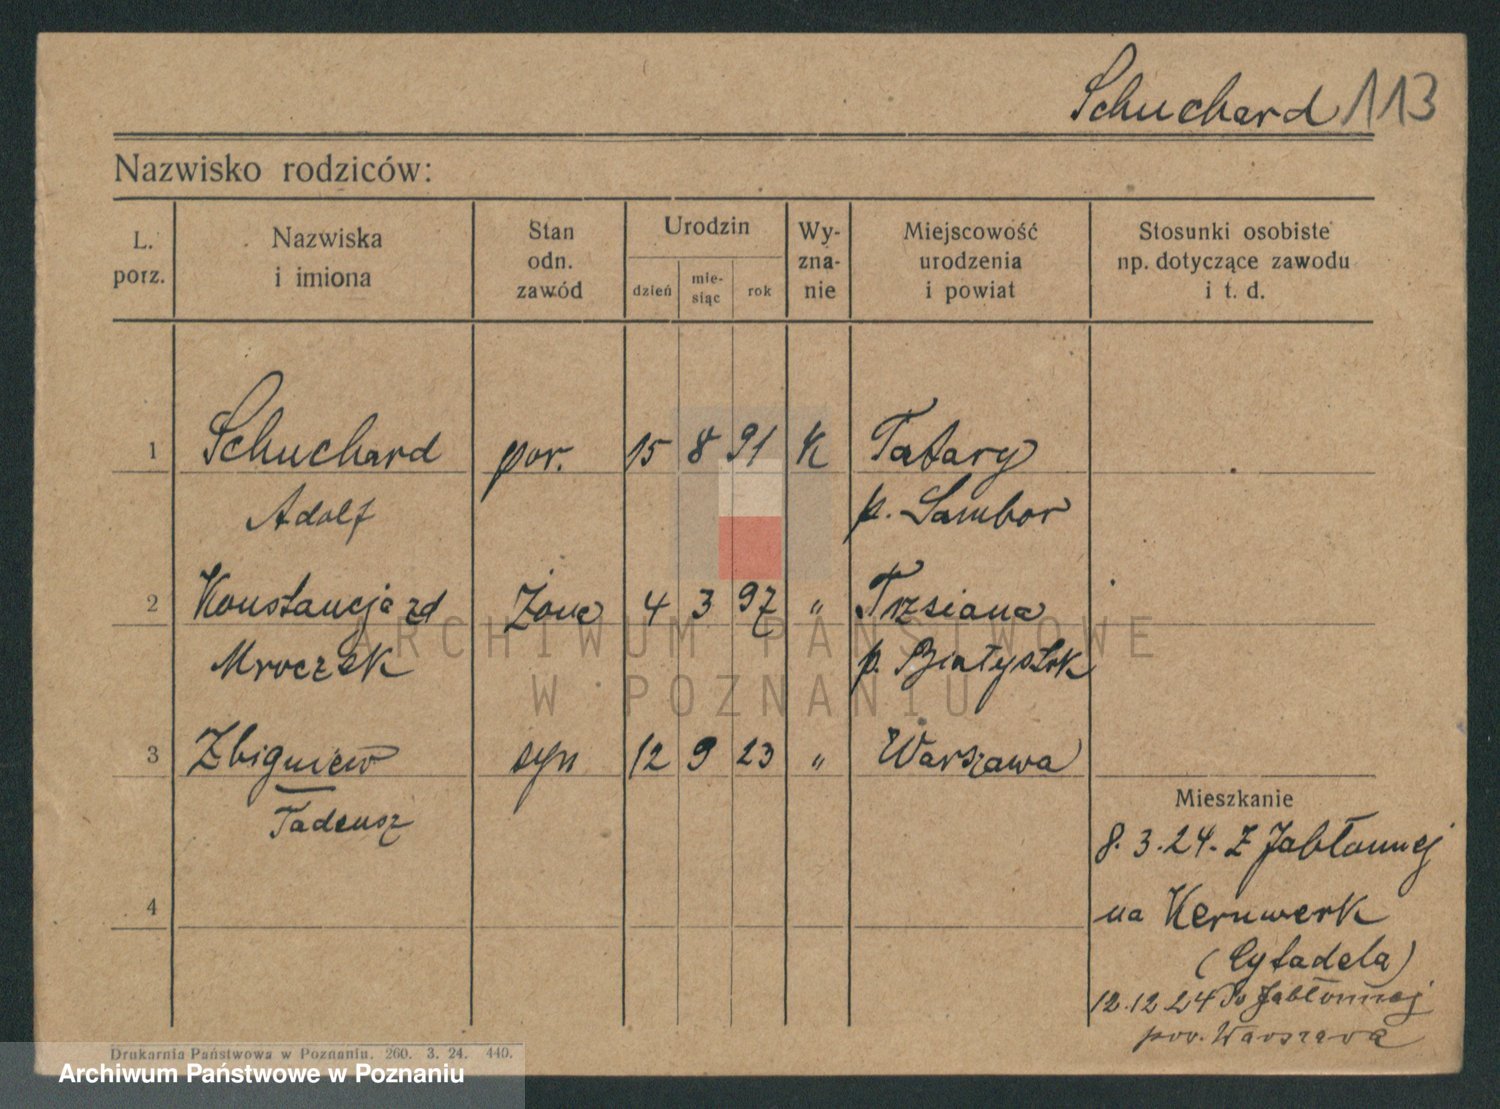 Schuchard 113
Nazwisko rodziców:
L. porz.
Nazwiska i imiona
Stan odn. zawód
Urodzin
dzień
mie-siąc
rok
Wy-zna-nie
Miejscowość urodzenia i powiat
Stosunki osobiste np. dotyczące zawodu i t. d.
1 Schuchard por. 15 8 91 K Tatary
Adolf p. Sambor
2 Konstancja zd Żona 4 3 97 „ Trzsiana
Mroczek p. Białystok
3 Zbigniew syn 12 9 23 „ Warszawa
Tadeusz
Mieszkanie
8. 3. 24. Z Jabłonnej
4 na Kernwerk
(Cytadela)
12.12 24 Do Jabłonnej
pow. Warszawa
ARCHIWUM PAŃSTWOWE
W POZNANIU
Drukarnia Państwowa w Poznaniu. 260. 3. 24. 440.
Archiwum Państwowe w Poznaniu